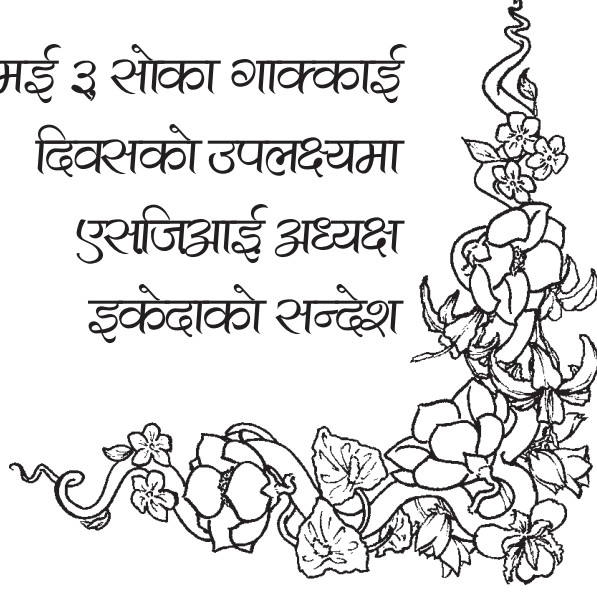 मई ३ सोका गाक्काई
दिवसको उपलक्ष्यमा
एसजिआई अध्यक्ष
इकेदाको सन्देश